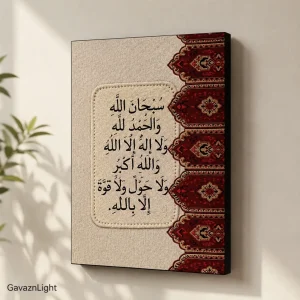 سُبْحَانَ اللَّهِ
وَالْحَمْدُ لِلَّهِ
وَلَا إِلَهَ إِلَّا اللَّهُ
وَاللَّهُ أَكْبَرُ
وَلَا حَوْلَ وَلَا قُوَّةَ
إِلَّا بِاللَّهِ.
GavaznLight